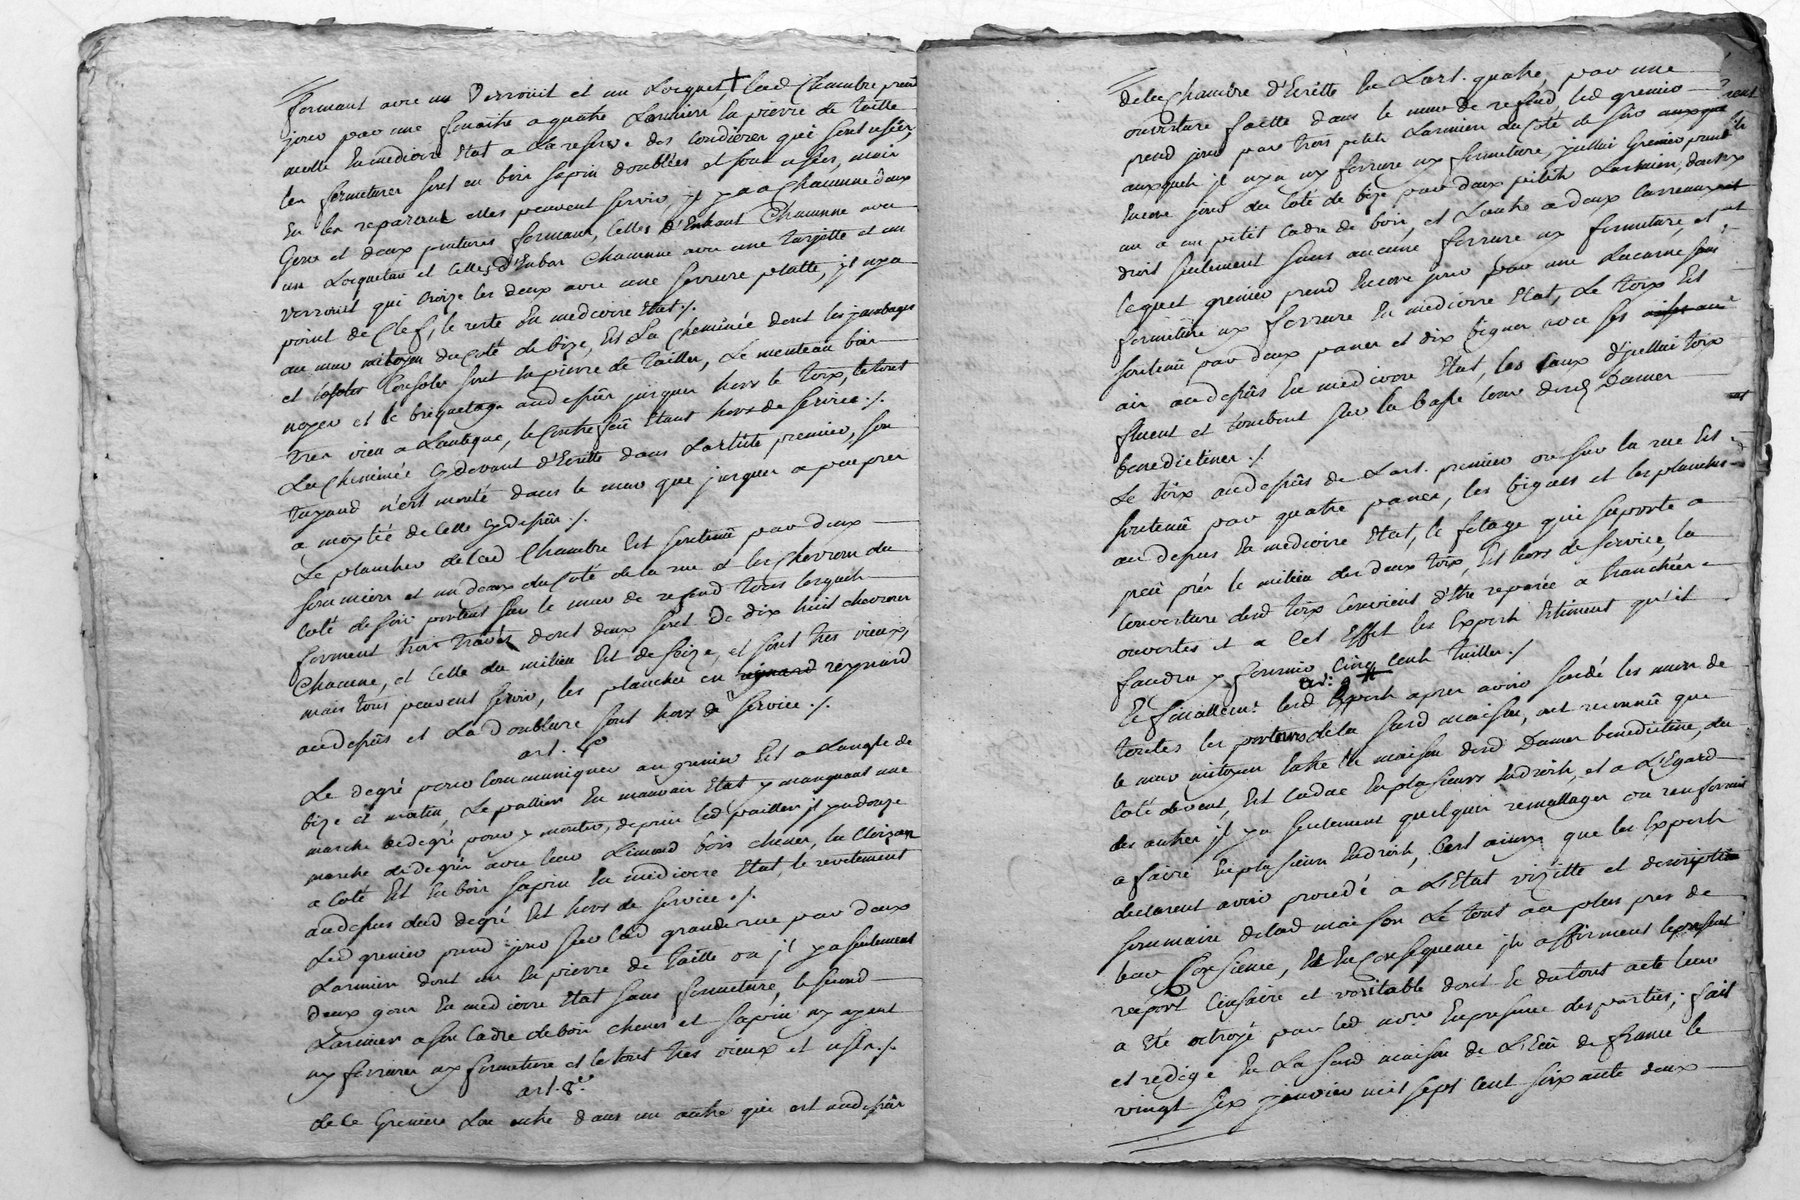 formant avec un Verrouit et un Loquet, + lad Chambre prent
jour par une fenaitre a quatre Larmiers la pierre de taille
melle En mediocre Etat a la reserve des Coudieres qui sont usées,
les fermetures sont en bois sapin doublées et sont usées, mais
En les reparant elles peuvent servir, il y a a Chaqunne deux
Gons et deux pentures formant, Celles d'Enhaut Chacunne avec
un Loquetau et Celles d'Enbas Chacunne avec une targette et un
verrouit qui croize les deux avec une serrure platte, il ny a
point de Clef, le reste En mediocre Etat ./.
au mur mitoyen du Coté de bize, Est La Cheminée dont les jambages
et Consoles sont En pierre de tailles, Le menteau bois
noyer et le briquetage audessus jusques hors le toix, le tout
tres vieu a Lantique, le Contrefeu Etant hors de service ./.
La Cheminée Cy devant d'Ecritte dans Larticle premier, son
tuyaud n'est monté dans le mur que jusques a peu pres
a moytié de Celle Cy dessus ./.
Le plancher de lad Chambre Est soutenu par deux
sommiers et un deaux du Coté de la rue et les Chevrons du
Coté de soir portent sur le mur de refend tous lesquels
forment trois travées dont deux sont de dix huit chevrons
Chacune, et Celle du milieu Est de seize, et sont tres vieux,
mais tous peuvent servir, les planches en reynard reynard
audessus et La doublure sont hors de service ./.
art. 7e
Le degré pour Communiquer au grenier Est a Langle de
bize et matin, Le pallier En mauvais Etat y manquant une
marche de degré pour y monter, depuis led paillier il y a douze
marche de degrés avec leur Limond bois chenes, La Cloizon
a Coté Est En bois sapin En mediocre Etat, le revetement
audessus dud degré Est hors de service ./.
Led grenier prend jour sur lad grande rue par deux
Larmiers dont un En pierre de taille ou il y a seulement
deux gons En mediocre Etat sans fermeture, le second
Larmier a son Cadre de bois chenes et sapin ny ayant
ny ferrures ny fermeture et le tout tres vieux et usés ./.
art. 8e.
de Ce Grenier Lon entre dans un autre qui est audessus
de la Chambre d'Ecritte En Lart. quatre, par une
ouverture faitte dans le mur de refend, led grenier
prend jour par trois petits Larmiers du Coté de soir auxquels
auxquels il ny a ny ferrure ny fermeture, ycellui Grenier prend
Encore jour du Coté de bize par deux petits Larmiers, dont
un a un petit Cadre de bois, et Lautre a deux Carreaux
droit seulement sans aucune ferrure ny fermeture, et
lequel grenier prend Encore jour par une Lucarne sans
fermeture ny ferrure En mediocre Etat, Le toix Est
soutenu par deux panes et dix bignes avec ses
ais audessus En mediocre Etat, les Eaux dycellui toix
fluent et tombent sur la basse Cour desd Dames
benedictines ./.
Le toix audessus de Lart. premier ou sur la rue Est
soutenu par quatre panes, les bignes et les planches
au dessus En mediocre Etat, le fetage qui suporte a
peu prés le milieu des deux toix, Est hors de service, la
Couverture dud toix Convient d'Etre reparée a tranchées
ouvertes et a Cet Effet les Experts Estiment qu'il
faudra y fournir Cinq Cents tuilles ./.
art: 9
Et finallement lesd Experts apres avoir sondé les murs de
toutes les parties de la susd maison, ont reconnu que
le mur mitoyen Entre la maison desd Dames benedictine, du
Coté de vent, Est Caduc En plusieurs Endroits, et a L'Egard
des autres il y a seulement quelques remallages ou renformis
a faire En plusieurs Endroits, C'est ainsy que les Experts
declarent avoir procedé a L'Etat vizitte et description
sommaire de lad maison Le tout au plus pres de
leur Consience, Et En Consequence ils affirment le present
raport Cinsaire et veritable dont Et du tout acte leur
a Eté octroyé par led nore En presence des parties; fait
et redigé En La susd maison de L'Ecu de france le
vingt six janvier mil sept Cent soixante deux